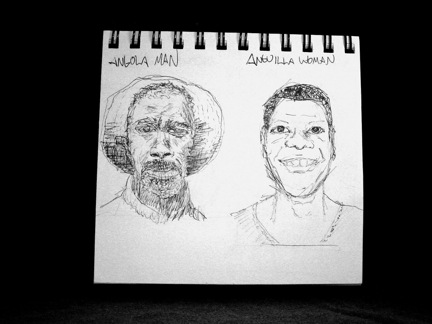 ANGOLA MAN
ANGUILLA WOMAN